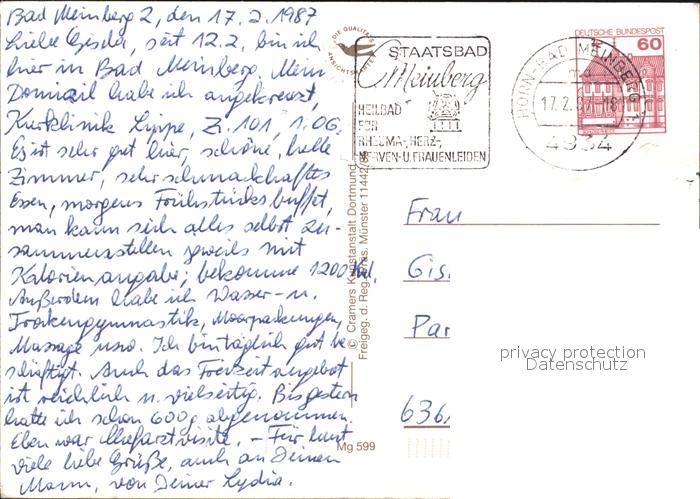 Bad Meinberg 2, den 17.2.1987
Liebe Gisela, seit 12.2. bin ich
hier in Bad Meinberg. Mein
Domizil habe ich angekreuzt,
Kurklinik Lippe, Zi. 101, 1. OG.
Es ist sehr gut hier, schöne, helle
Zimmer, sehr schmackhaftes
Essen, morgens Frühstücksbuffet,
man kann sich alles selbst zu-
sammenstellen jeweils mit
Kalorienangabe; bekomme 1200 Kal.
Außerdem habe ich Wasser- u.
Trockengymnastik, Moorpackungen,
Massage usw. Ich bin täglich gut be-
schäftigt. Auch das Freizeitangebot
ist reichlich u. vielseitig. Bis gestern
hatte ich schon 600g abgenommen.
Eben war Chefarztvisite. – Für heut
viele liebe Grüße, auch an Deinen
Mann, von Deiner Lydia.
DIE QUALITÄTS
ANSICHTSKARTE
STAATSBAD
Meinberg
HEILBAD
FÜR
RHEUMA-, HERZ-,
NERVEN- U. FRAUENLEIDEN
HORN-BAD MEINBERG 1
17.2.87-18
4934
DEUTSCHE BUNDESPOST
60
© Cramers Kunstanstalt Dortmund
Freigeg. d. Reg. Präs. Münster 11442/
Mg 599
Frau
Gis.
Par
636
privacy protection
Datenschutz